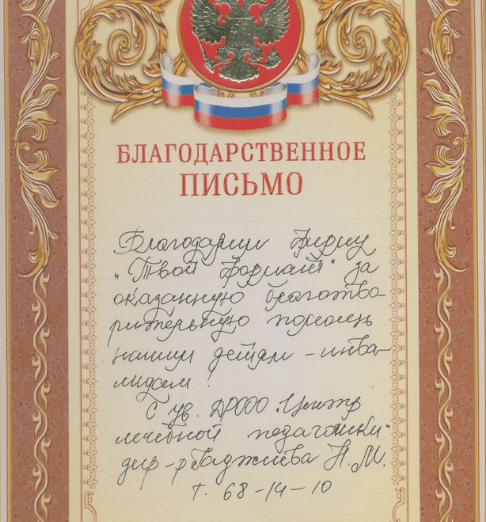 БЛАГОДАРСТВЕННОЕ
ПИСЬМО
Благодарим фирму
"Твой формат" за
оказанную благотво-
рительную помощь
нашим детям - инва-
лидам!
С ув. ДРООО "Центр
лечебной педагогики"
дир-р Гаджиева Н.М.
т. 68-14-10